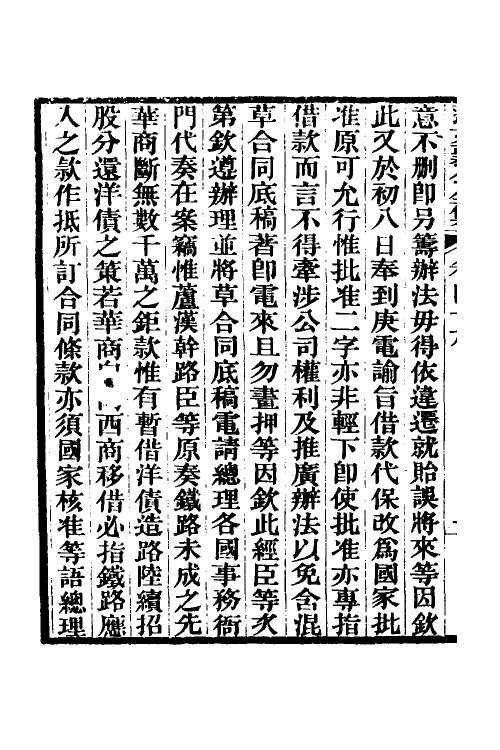 意不刪卽另籌辦法毋得依違遷就貽誤將來等因欽
此又於初八日奉到庚電諭旨借款代保改爲國家批
准原可允行惟批准二字亦非輕下卽使批准亦專指
借款而言不得牽涉公司權利及推廣辦法以免含混
草合同底稿著卽電來且勿畫押等因欽此經臣等次
第欽遵辦理並將草合同底稿電請總理各國事務衙
門代奏在案竊惟蘆漢幹路臣等原奏鐵路未成之先
華商斷無數千萬之鉅款惟有暫借洋債造路陸續招
股分還洋債之策若華商向西商移借必指鐵路應
人之款作抵所訂合同條款亦須國家核准等語總理